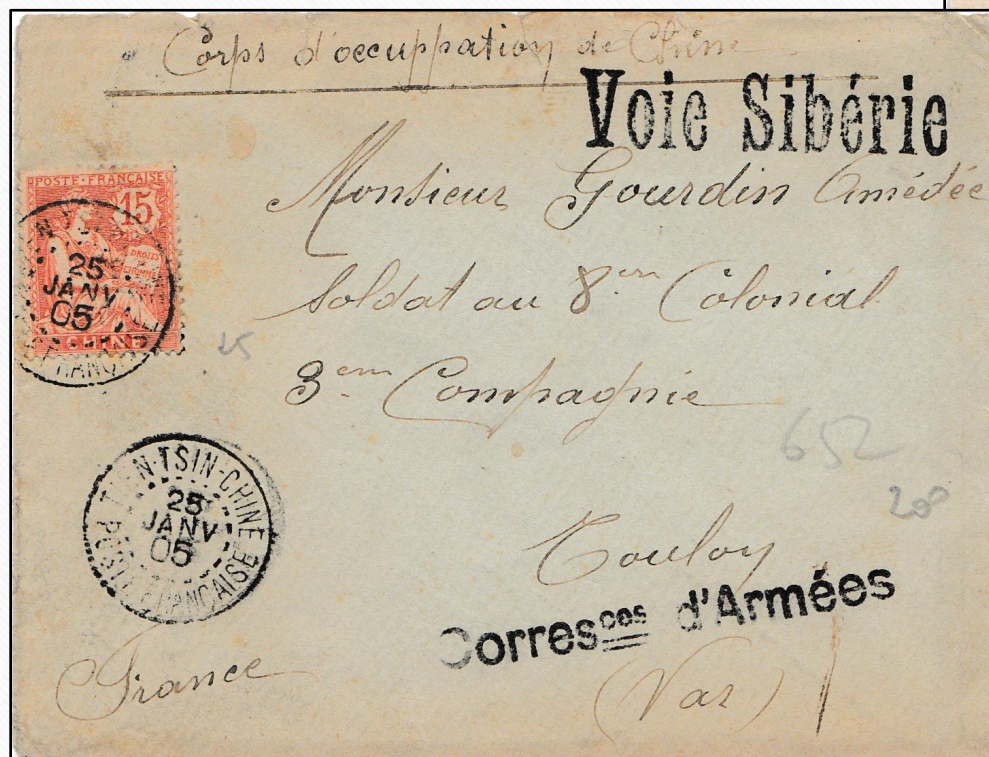 Corps d'occuppation de Chine
Voie Sibérie
POSTE FRANÇAISE
15
DROITS
CHINE
25
JANV
05
Monsieur Gourdin Amédée
Soldat au 8em Colonial
3em Compagnie
25
652
208
TIEN-TSIN-CHINE
25
JANV
05
POSTE FRANÇAISE
Toulon
Corresces d'Armées
France
(Var)